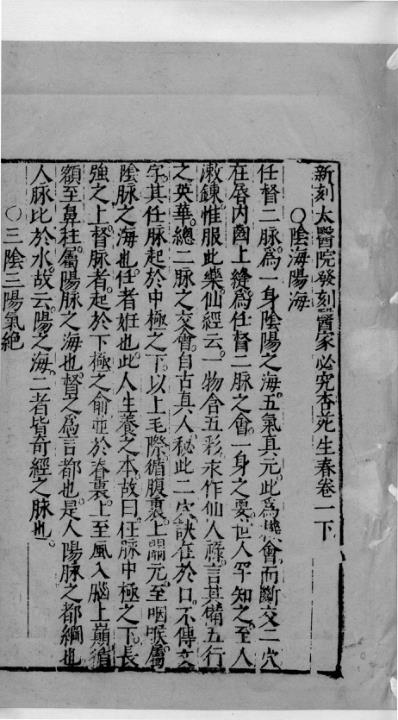 新刻太醫院發刻醫家必究杏苑生春卷一下
○陰海陽海
任督二脉爲一身陰陽之海五氣真元此爲機會而斷交二穴
在唇内齒上縫爲任督二脉之會一身之要世人罕知之至人
漱鍊惟服此藥仙經云一物含五彩永作仙人祿言其備五行
之英華總二脉之交會自古真人秘此二穴訣在於口不傳文
字其任脉起於中極之下以上毛際循腹裏上關元至咽喉屬
陰脉之海也任者妊也此人生養之本故曰任脉中極之下長
強之上督脉者起於下極之俞並於脊裏上至風入腦上巔循
額至鼻柱屬陽脉之海也督之爲言都也是人陽脉之都綱也
人脉比於水故云陽之海二者皆奇經之脉也
○三陰三陽氣絶